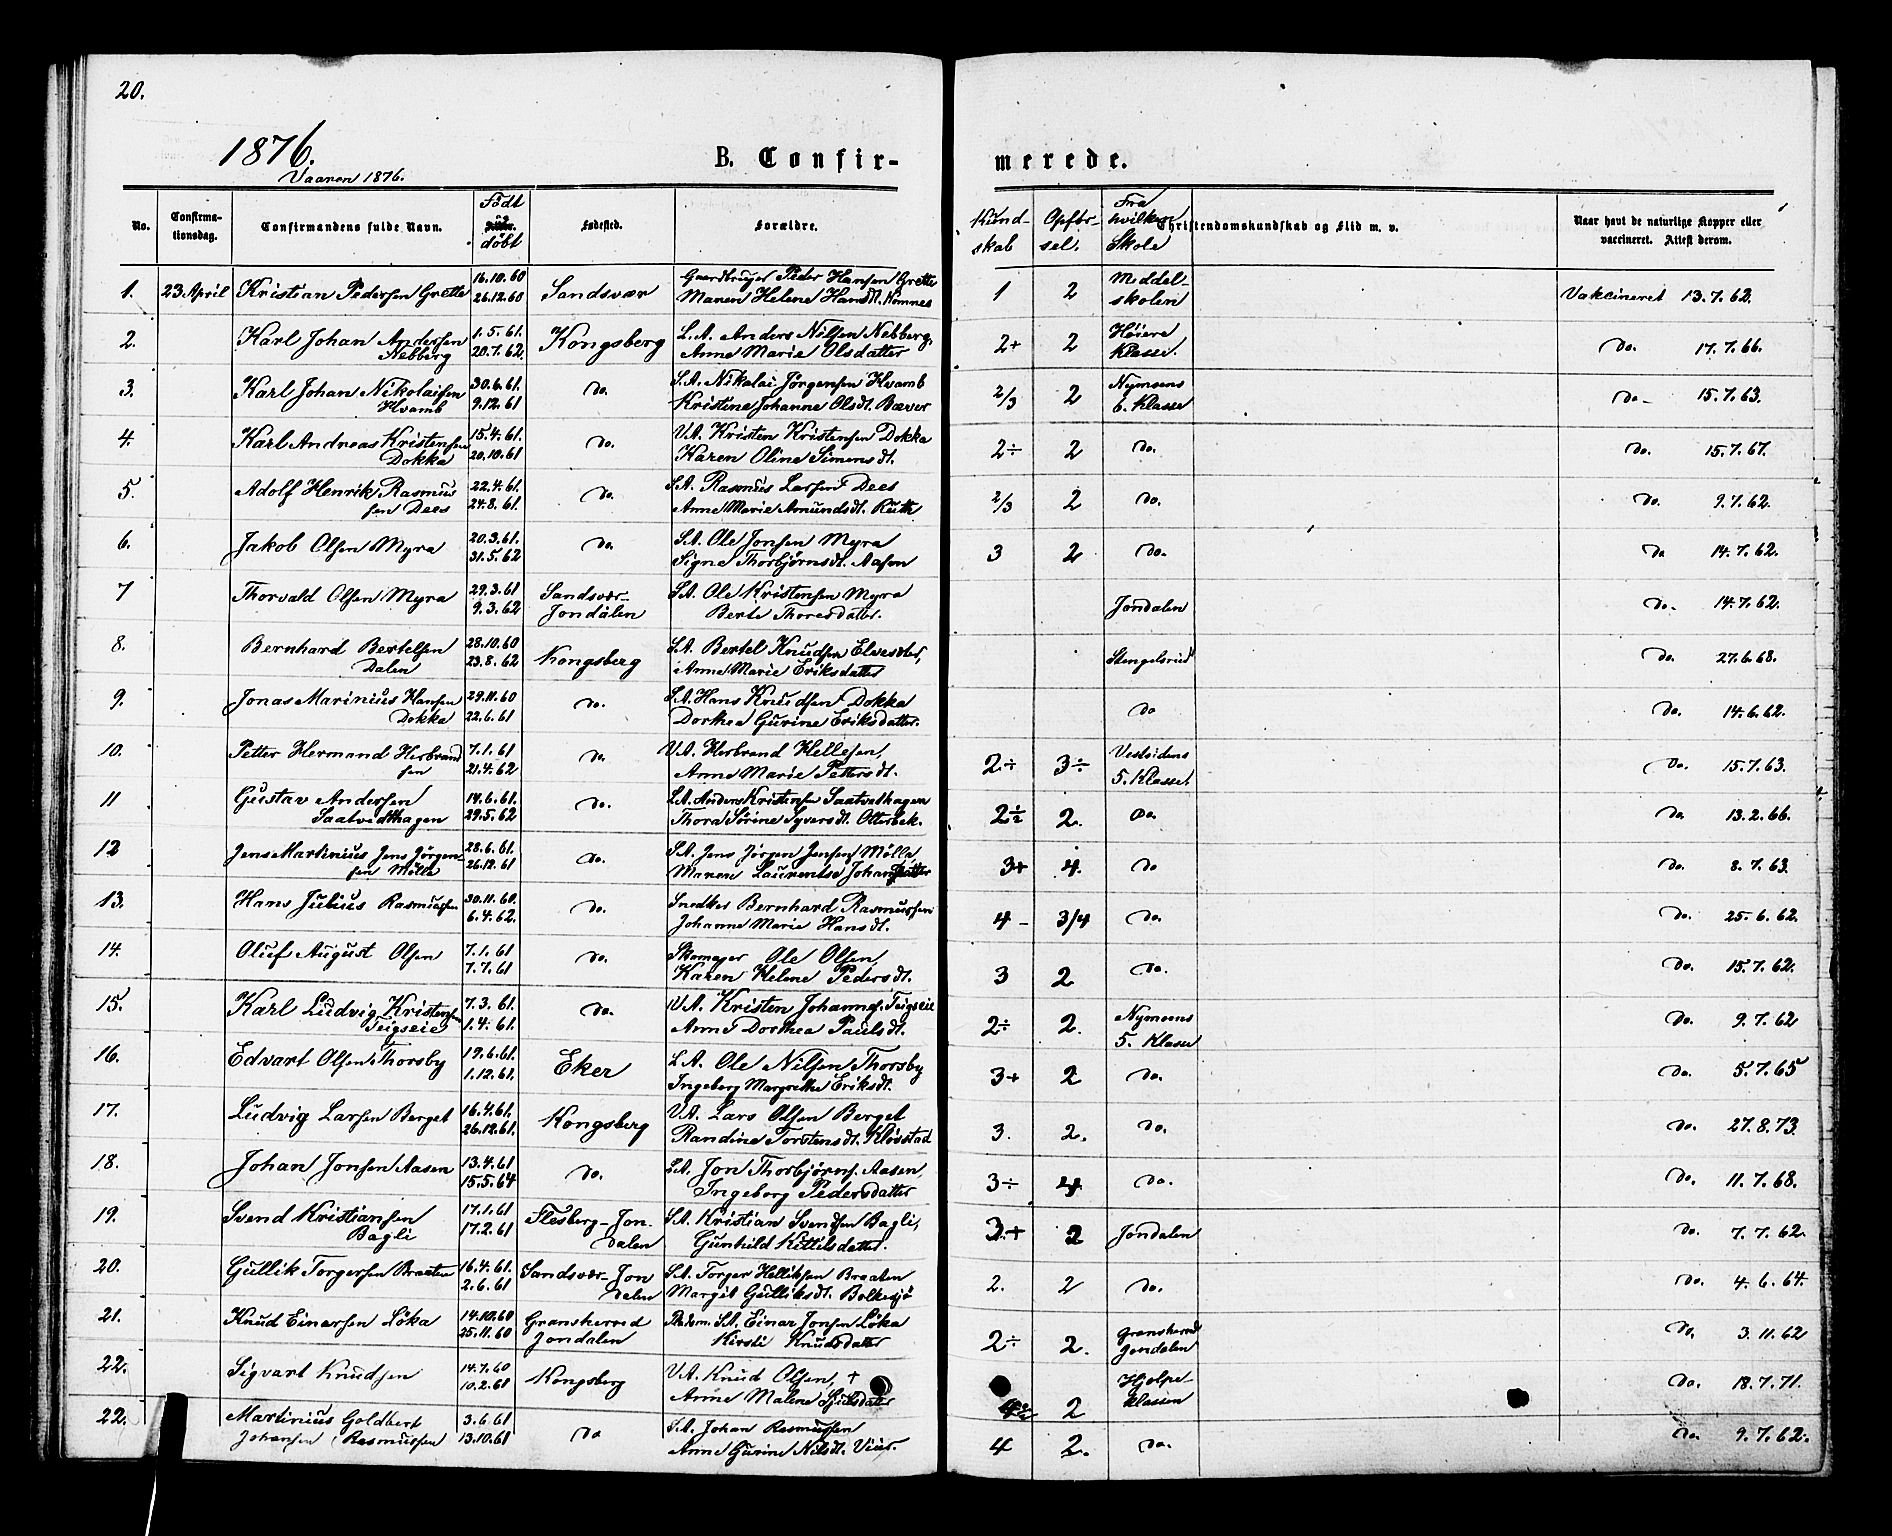 20.
1876.
B. Confirmerede.
Vaaren 1876.
No. Confirmationsdag. Confirmandens fulde Navn. Født og døbt Fødested. Forældre. Kundskab Opførsel. Fra hvilken Skole Christendomskundskab og Flid m. v. Naar havt de naturlige Kopper eller vaccineret. Attest derom.
1. 23 April Kristian Pedersen Grette 16.10.60 Sandsvær Gaardbruger Peder Hansen Grette 1 2 Middel- Vakcineret 13.7.62.
26.12.60 Maren Helene Hansdt. skolen
2. Karl Johan Andersen 1.5.61. Kongsberg L.A. Anders Nilsen Nebberg, 2+ 2 Höiere do. 17.7.66.
Nebberg 20.7.62. Anne Marie Olsdatter Klasse.
3. Karl Johan Nikolaisen 30.6.61. do. S.A. Nikolai Jörgensen Hvamb 2/3 2 Nymoens do- 15.7.63.
Hvamb 9.12.61 Kristine Johanne Olsdt. Bæver 6. Klasse
4. Karl Andreas Kristensen 15.4.61. do. V.A. Kristen Kristensen Dokka 2÷ 2 do. do. 15.7.67.
Dokka 20.10.61 Karen Oline Simensdt.
5. Adolf Henrik Rasmus 22.4.61. do. S.A. Rasmus Larsen Dees 2/3 2 do. do. 9.7.62.
sen Dees 24.8.61. Anne Marie Amundsdt. Ruth
6. Jakob Olsen Myra 20.3.61. do. S.A. Ole Jonsen Myra 3 2 do. do 14.7.62.
31.5.62 Signe Thorbjörnsdt. Aasen
7 Thorvald Olsen Myra 29.3.61 Sandsvær- S.A. Ole Kristensen Myra Jondalen do. 14.7.62.
9.3.62 Jondalen Berte Thoresdatter.
8. Bernhard Bertelsen 28.10.60 Kongsberg S.A. Bertel Knudsen Stengelsrud do. 27.6.68.
Dalen 23.8.62 Anne Marie Eriksdatter
9. Jonas Marinius Hansen 29.11.60 do. S.A. Hans Knudsen Dokka do do. 14.6.62.
Dokka 22.6.61 Dorthea Gurine Eriksdatter.
10. Petter Hermand Herbrand 7.1.61 do. V.A. Herbrand Hellesen, 2÷ 3÷ Vestsidens do. 15.7.63.
sen 21.4.62 Anne Marie Pettersdt. 5. Klasse
11 Gustav Andersen 14.6.61. do. L.A. Anders Kristensen Saatvethagen 2 2. do. do. 13.2.66.
Saatvedthagen 29.5.62 Thora Sörine Syversdt. Otterbek.
12 Jens Martinius Jens Jörgen- 28.6.61. do. S.A. Jens Jörgen Jensen Mølle 3+ 4. do do. 8.7.63.
sen Mölle 26.12.61 Maren Laurentse Johansdatter
13. Hans Julius Rasmussen 30.11.60. do. Snedker Bernhard Rasmussen 4- 3/4 do. do. 25.6.62.
6.4.62. Johanne Marie Hansdt.
14. Oluf August Olsen 7.1.61 do. Skomager Ole Olsen, 3 2 do. do. 15.7.62.
7.7.61 Karen Helene Pedersdt.
15. Karl Ludvig Kristensen 7.3.61. do. V.A. Kristen Johannes. Teigseie 2÷ 2. Nymoens do. 9.7.62
Teigseie 1.4.61. Anne Dorthea Paulsdt. 5. Klasse
16. Edvart Olsen Thorsby 19.6.61. Eker L.A. Ole Nilsen Thorsby 3+ 2 do. do. 5.7.65
1.12.61. Ingeborg Margrethe Eriksdt.
17. Ludvig Larsen Berget 16.4.61. Kongsberg V.A. Lars Olsen Berget 3. 2. do. do. 27.8.73.
26.12.61. Randine Torstensdt. Kløvstad
18. Johan Jonsen Aasen 13.4.61 do. L.A. Jon Thorbjörns. Aasen, 3÷ 4 do. do. 11.7.68.
15.5.64 Ingeborg Pedersdatter
19. Svend Kristiansen 17.1.61 Flesberg-Jon- S.A. Kristian Svendsen Bagli, 3+ 2 Jondalen do. 7.7.62.
Bagli 17.2.61 dalen Gunhild Kittilsdatter.
20. Gullik Torgersen Braaten 16.4.61. Sandsvær-Jon S.A. Torger Helliksen Braaten 2. 2 do. do. 4.6.64.
2.6.61 dalen Margit Gulliksdt. Bolkesjø
21. Knud Einersen Löka 14.10.60 Gransherred S.A. Einar Jonsen Löka 2÷ 2. Gransherred do. 3.11.62
25.11.60 Jondalen Kirsti Knudsdatter Jondalen
22. Sigvart Knudsen 14.7.60 Kongsberg V.A. Knud Olsen, + 2 Hjelpe- do. 18.7.71.
10.2.61 Anne Malene klassen
22. Martinius Goldbert 3.6.61 do S.A. Johan Rasmussen 4 2. do. do. 9.7.62.
Johansen Rasmussen 13.10.61 Anne Gurine Nilsdt.